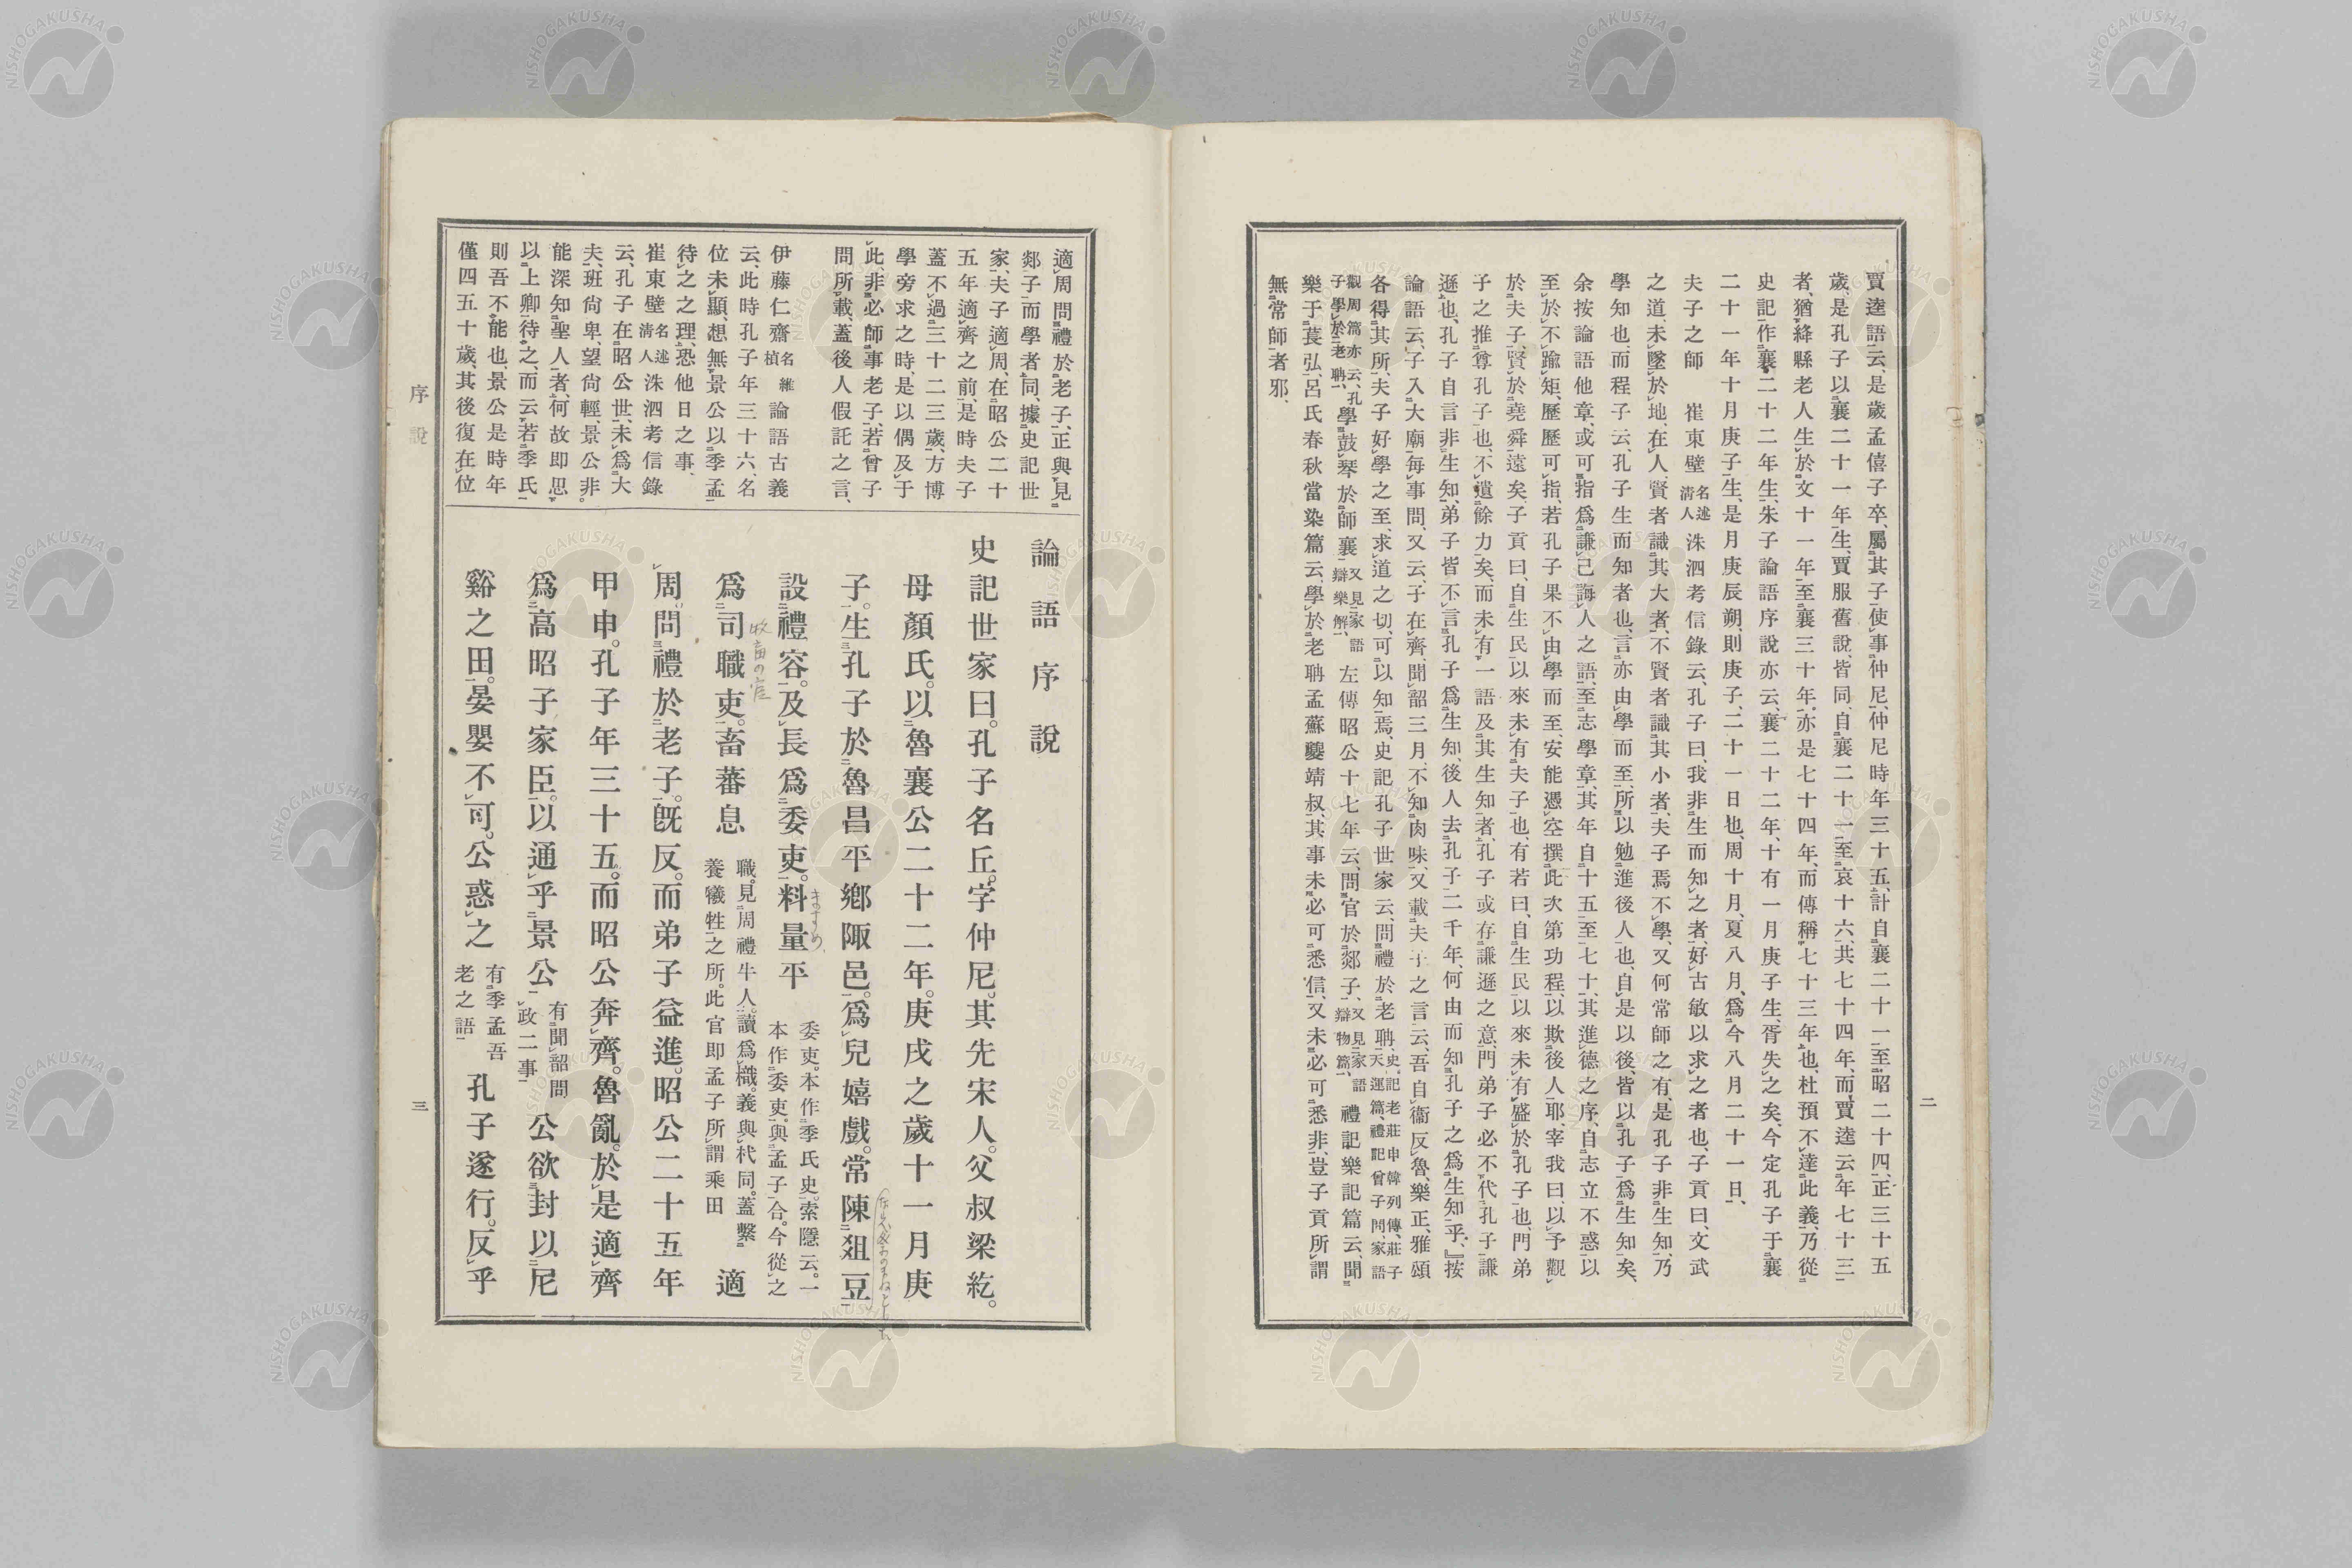 二
賈逵語云、是歲孟僖子卒、屬其子使事仲尼、仲尼時年三十五、計自襄二十一至昭二十四、正三十五
歲、是孔子以襄二十一年生、賈服舊說、皆同、自襄二十一至哀十六、共七十四年、而賈逵云年七十三、
者、猶絳縣老人生於文十一年、至襄三十年、亦是七十四年、而傳稱七十三年也、杜預不達此義、乃從
史記作襄二十二年生、朱子論語序說亦云、襄二十二年、十有一月庚子生、胥失之矣、今定孔子于襄
二十一年十月庚子生、是月庚辰朔、則庚子、二十一日也、周十月、夏八月、爲今八月二十一日、
夫子之師　崔東壁名述清人洙泗考信錄云、孔子曰、我非生而知之者、好古敏以求之者也、子貢曰、文武
之道、未墜於地、在人、賢者識其大者、不賢者識其小者、夫子焉不學、又何常師之有、是孔子非生知、乃
學知也、而程子云、孔子生而知者也、言亦由學而至、所以勉進後人也、自是以後、皆以孔子爲生知矣、
余按論語他章、或可指爲謙己誨人之語、至志學章、其年自十五至七十、其進德之序、自志立不惑以
至於不踰矩、歷歷可指、若孔子果不由學而至、安能憑空撰此次第功程、以欺後人耶、宰我曰、以予觀
於夫子、賢於堯舜遠矣、子貢曰、自生民以來未有夫子也、有若曰、自生民以來未有盛於孔子也、門弟
子之推尊孔子也、不遺餘力矣、而未有一語及其生知者、孔子或存謙遜之意、門弟子必不代孔子謙
遜也、孔子自言非生知、弟子皆不言孔子爲生知、後人去孔子二千年、何由而知孔子之爲生知乎、』按
論語云、子入大廟、每事問、又云、子在齊、聞韶三月、不知肉味、又載夫子之言云、吾自衞反魯、樂正、雅頌
各得其所、夫子好學之至、求道之切、可以知焉、史記孔子世家云、問禮於老聃、史記老莊申韓列傳、莊子天運篇、禮記曾子問、家語
觀周篇亦云、孔子學於老聃、學鼓琴於師襄、又見家語辯樂解、左傳昭公十七年云、問官於郯子、又見家語辯物篇、禮記樂記篇云、聞
樂于萇弘、呂氏春秋當染篇云、學於老聃孟蘇夔靖叔、其事未必可悉信、又未必可悉非、豈子貢所謂
無常師者邪、
適周問禮於老子、正與見
郯子而學者同、據史記世
家、夫子適周、在昭公二十
五年適齊之前、是時夫子
蓋不過三十二三歲、方博
學旁求之時、是以偶及于
此、非必師事老子、若曾子
問所載、蓋後人假託之言、
伊藤仁齋名維楨論語古義
云、此時孔子年三十六、名
位未顯、想無景公以季孟
待之之理、恐他日之事、
崔東壁名述清人洙泗考信錄
云、孔子在昭公世、未爲大
夫、班尙卑、望尙輕、景公非。
能深知聖人者、何故卽思
以上卿待之、而云若季氏
則吾不能也、景公是時年
僅四五十歲、其後復在位
論語序說
史記世家曰。孔子名丘。字仲尼。其先宋人。父叔梁紇。
母顏氏。以魯襄公二十二年。庚戌之歲十一月庚
子。生孔子於魯昌平鄉陬邑。爲兒嬉戲。常陳俎豆
設禮容。及長爲委吏。料量平
委吏。本作季氏史。索隱云。一
本作委吏。與孟子合。今從之
爲司職吏。畜蕃息
職。見周禮牛人。讀爲樴。義與杙同。蓋繫
養犧牲之所。此官卽孟子所謂乘田
適
周。問禮於老子。旣反。而弟子益進。昭公二十五年
甲申。孔子年三十五。而昭公奔齊。魯亂。於是適齊
爲高昭子家臣。以通乎景公
有聞韶問
政二事
公欲封以尼
谿之田。晏嬰不可。公惑之
有季孟吾
老之語
孔子遂行。反乎
牧畜の官
序說
三